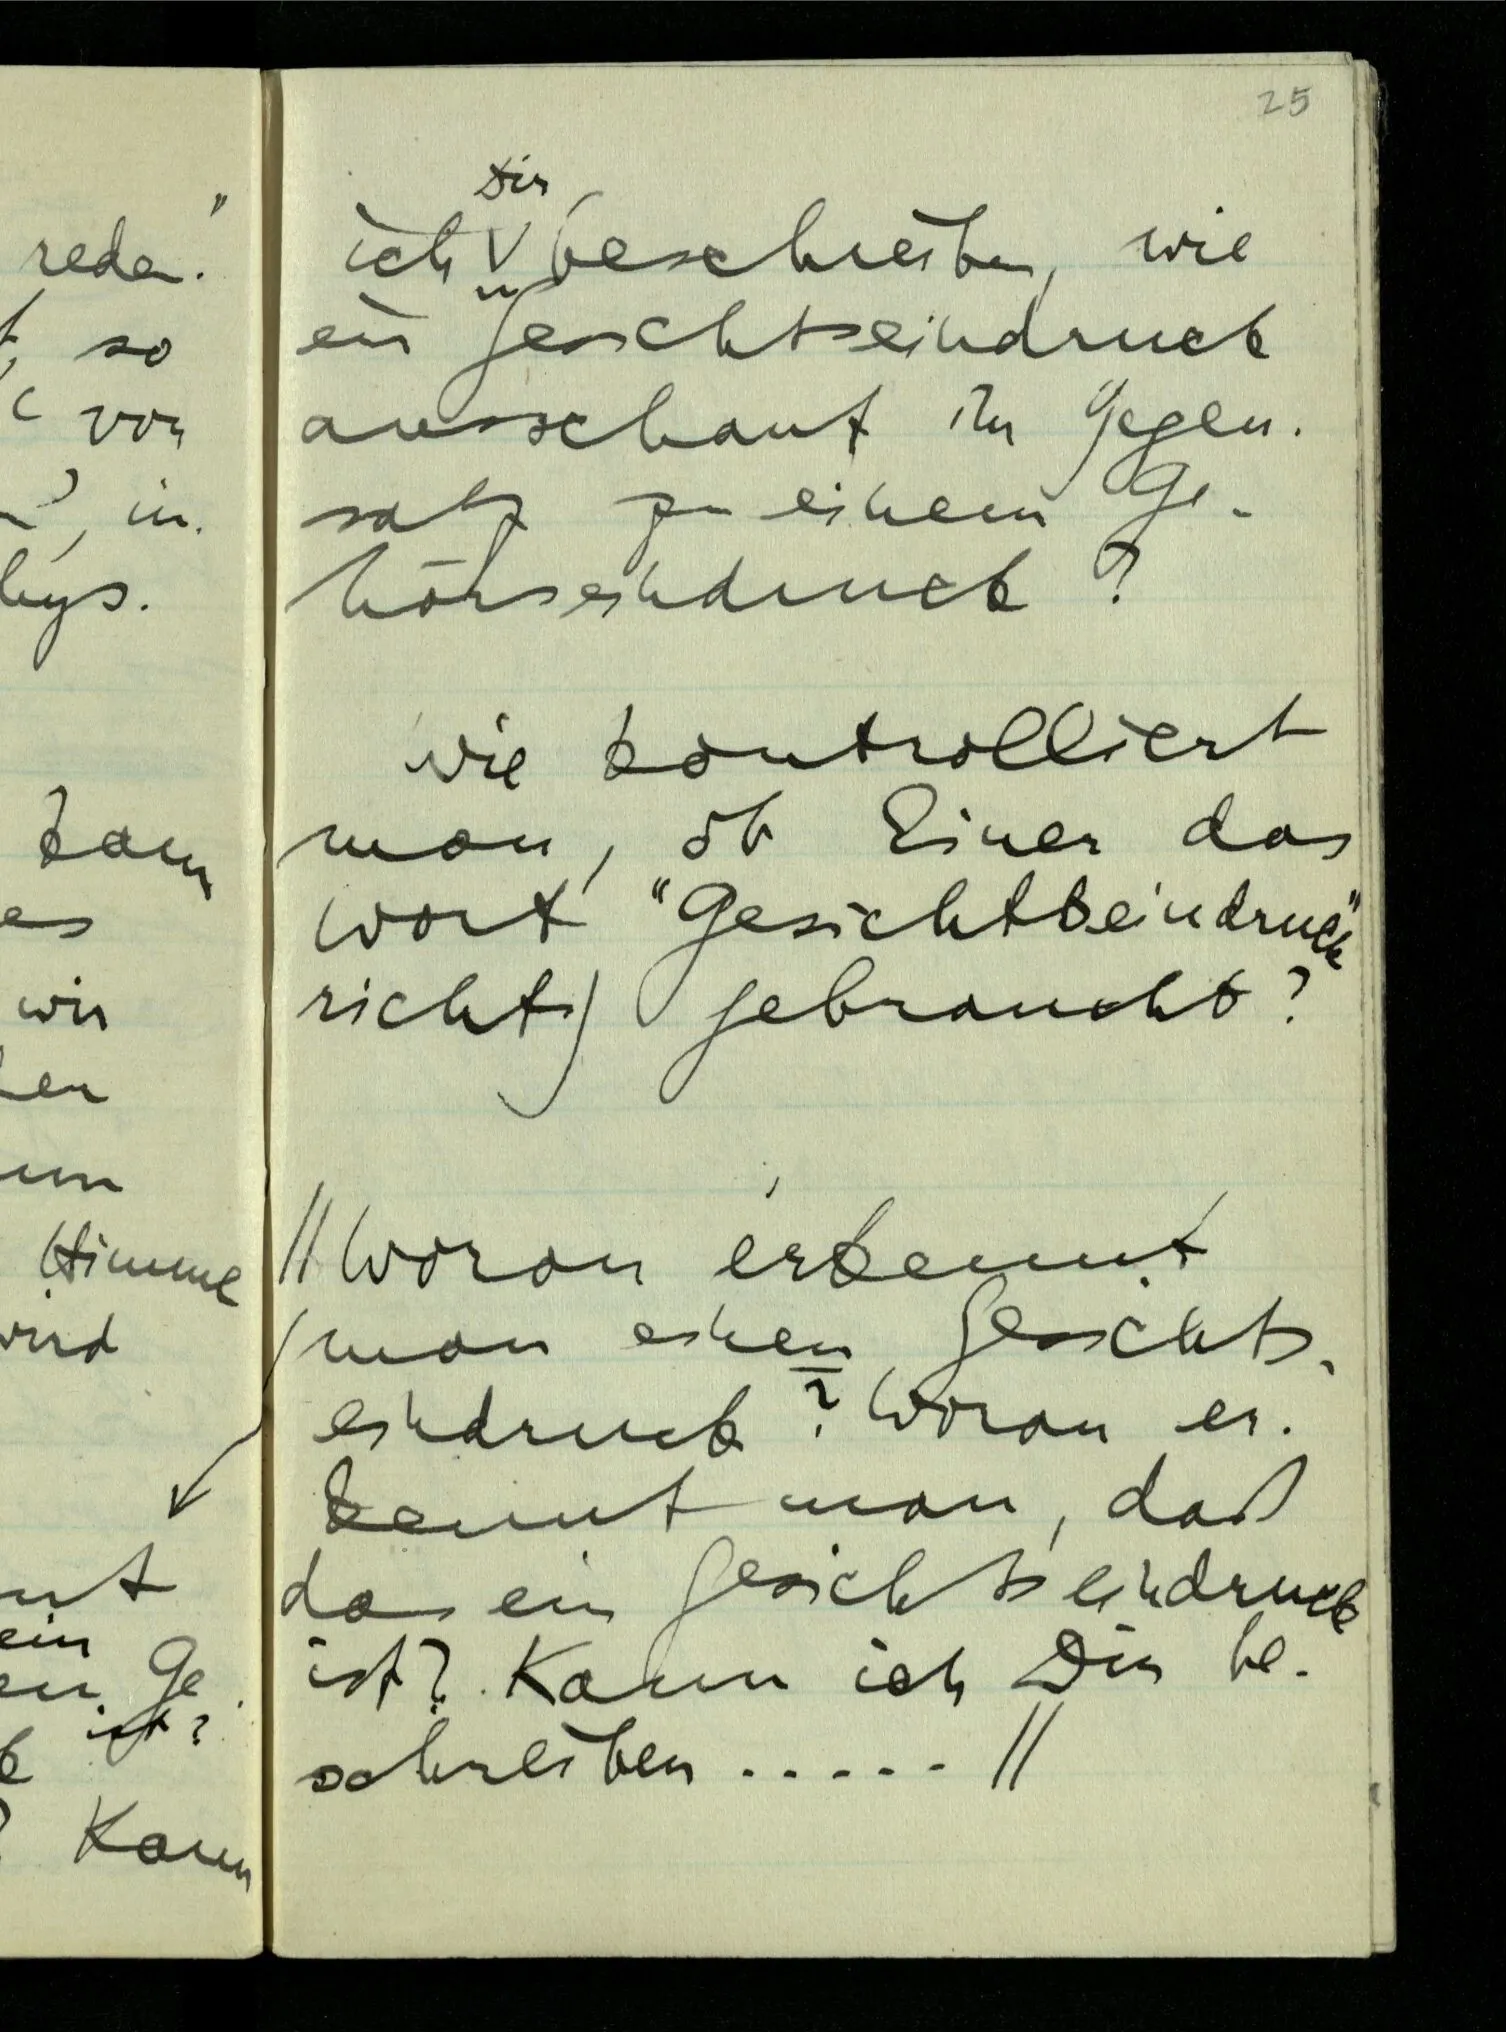 reden."
so
von
in-
kann
es
wir
Himmel
wird
ein
Ge
ist?
Kann
25
Dir
ich ∨ beschreiben, wie
ein Gesichtseindruck
ausschaut im Gegen-
satz zu einem Ge-
hörseindruck?
Wie kontrolliert
man, ob Einer das
Wort "Gesichtseindruck"
richtig gebraucht?
//Woran erkennt
man einen Gesichts-
eindruck? Woran er-
kennt man, daß
das ein Gesichtseindruck
ist? Kann ich Dir be-
schreiben ..... //